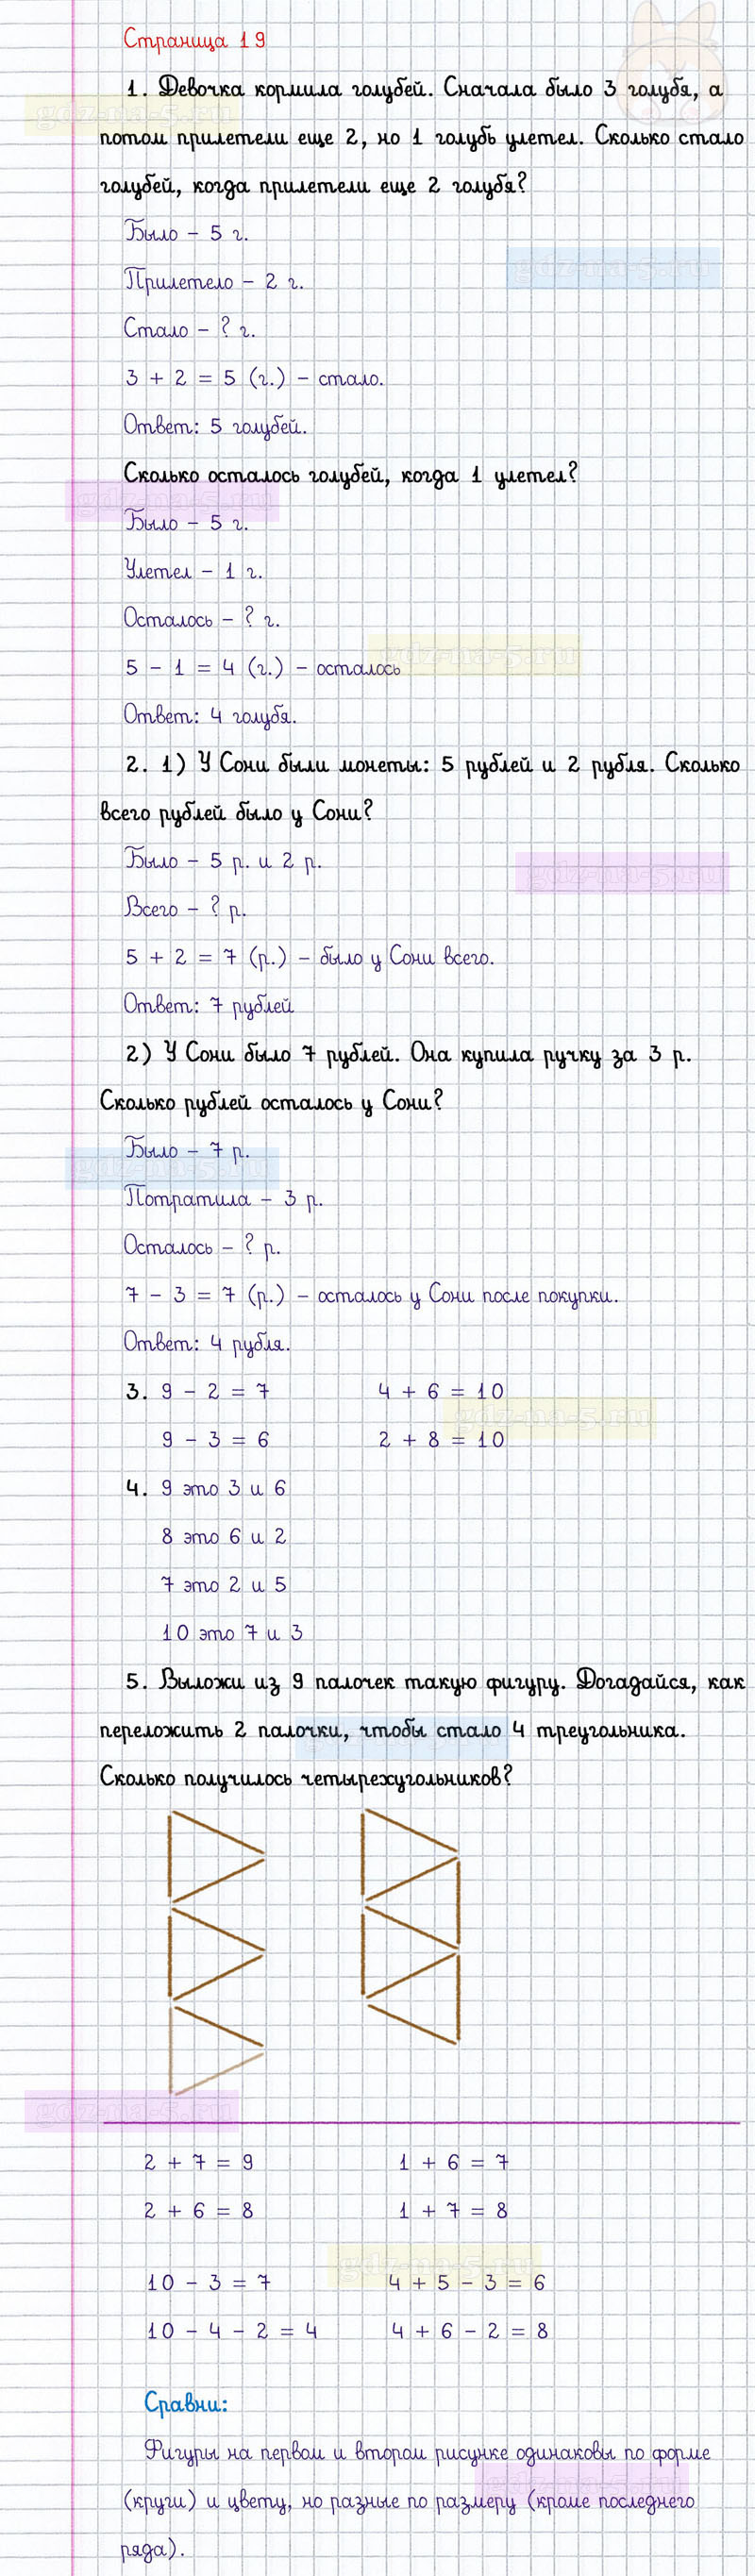 Страница 19
1. Девочка кормила голубей. Сначала было 3 голубя, а
gdz-na-5.ru
потом прилетели еще 2, но 1 голубь улетел. Сколько стало
голубей, когда прилетели еще 2 голубя?
Было – 5 г.
gdz-na-5.ru
Прилетело – 2 г.
Стало – ? г.
3 + 2 = 5 (г.) – стало.
Ответ: 5 голубей.
Сколько осталось голубей, когда 1 улетел?
gdz-na-5.ru
Было – 5 г.
Улетел – 1 г.
Осталось – ? г.
gdz-na-5.ru
5 – 1 = 4 (г.) – осталось
Ответ: 4 голубя.
2. 1) У Сони были монеты: 5 рублей и 2 рубля. Сколько
всего рублей было у Сони?
Было – 5 р. и 2 р.
gdz-na-5.ru
Всего – ? р.
5 + 2 = 7 (р.) – было у Сони всего.
Ответ: 7 рублей
2) У Сони было 7 рублей. Она купила ручку за 3 р.
Сколько рублей осталось у Сони?
Было – 7 р.
gdz-na-5.ru
Потратила – 3 р.
Осталось – ? р.
7 – 3 = 7 (р.) – осталось у Сони после покупки.
Ответ: 4 рубля.
3. 9 – 2 = 7 4 + 6 = 10
gdz-na-5.ru
9 – 3 = 6 2 + 8 = 10
4. 9 это 3 и 6
8 это 6 и 2
7 это 2 и 5
10 это 7 и 3
5. Выложи из 9 палочек такую фигуру. Догадайся, как
переложить 2 палочки, чтобы стало 4 треугольника.
gdz-na-5.ru
Сколько получилось четырехугольников?
gdz-na-5.ru
2 + 7 = 9 1 + 6 = 7
2 + 6 = 8 1 + 7 = 8
gdz-na-5.ru
10 – 3 = 7 4 + 5 – 3 = 6
10 – 4 – 2 = 4 4 + 6 – 2 = 8
Сравни:
Фигуры на первом и втором рисунке одинаковы по форме
gdz-na-5.ru
(круги) и цвету, но разные по размеру (кроме последнего
ряда).